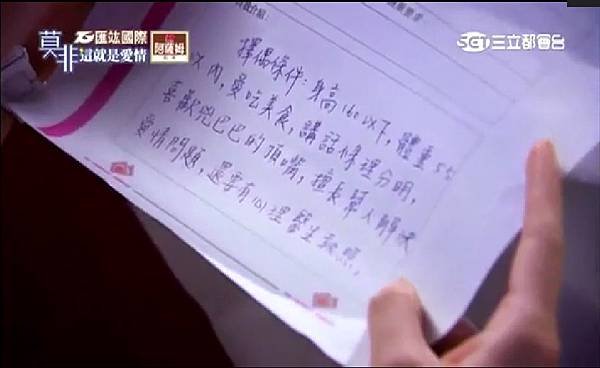 匯竑國際
莫非
這就是愛情
阿薩姆
SET三立都會台
擇偶條件：身高160以下，體重50
以內，愛吃美食，講話條理分明，
喜歡兇巴巴的頂嘴，擅長幫人解決
愛情問題，還要有心理醫生執照。